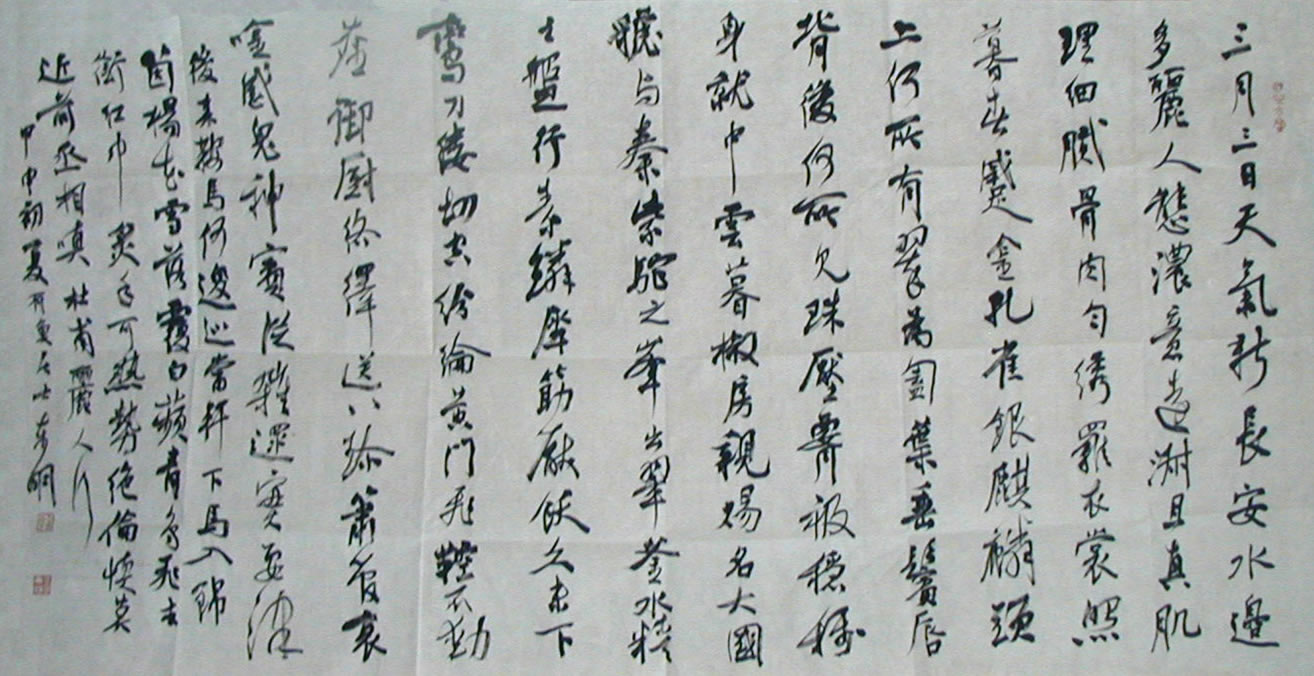 三月三日天氣新長安水邊
多麗人態濃意遠淑且真肌
理細膩骨肉勻绣羅衣裳照
暮春蹙金孔雀銀麒麟頭
上何所有翠為匎葉垂鬢唇
背後何所見珠壓腰衱穩稱
身就中雲暮椒房親賜名大國
虢与秦紫駝之峯出翠釜水精
之盤行素鱗犀筯厭飫久未下
鸞刀縷切空紛綸黄門飛鞚不動
塵御厨絡繹送八珍簫管哀
吟感鬼神賓從雜遝實要津
後来鞍馬何逡巡當軒下馬入錦
茵楊花雪落覆白蘋青鳥飛去
銜红巾炙手可熱勢绝倫慎莫
近前丞相嗔 杜甫麗人行
甲申初夏 居士